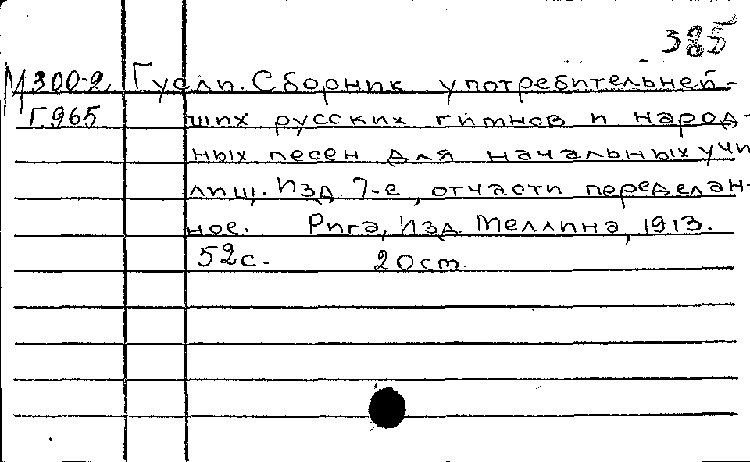 385
М300-2 Гусли. Сборник употребительней-
Г.965 ших русских гимнов и народ-
ных песен для начальных учи
лищ. Изд 7-е, отчасти переделан-
ное. Рига, Изд. Меллина, 1913.
52с. 20cm.